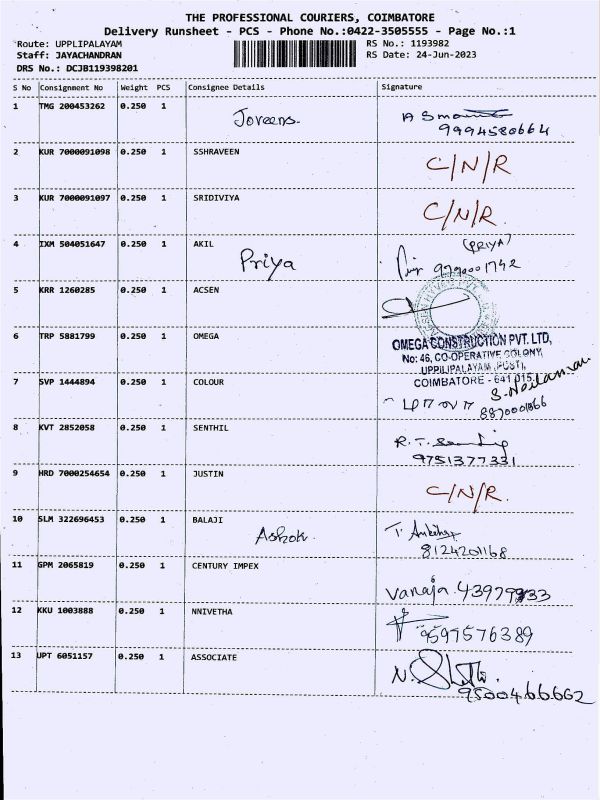 THE PROFESSIONAL COURIERS, COIMBATORE
Delivery Runsheet - PCS - Phone No.:0422-3505555 - Page No.:1
Route: UPPLIPALAYAM RS No.: 1193982
Staff: JAYACHANDRAN RS Date: 24-Jun-2023
DRS No.: DCJB119398201
S No Consignment No Weight PCS Consignee Details Signature
1 TMG 200453262 0.250 1
Joveens.
9994580664
2 KUR 7000091098 0.250 1 SSHRAVEEN
C/N/R
3 KUR 7000091097 0.250 1 SRIDIVIYA
C/N/R.
4 IXM 504051647 0.250 1 AKIL (PRIYA)
Priya 9790001742
5 KRR 1260285 0.250 1 ACSEN
6 TRP 5881799 0.250 1 OMEGA
OMEGA CONSTRUCTION PVT. LTD,
No: 46, CO-OPERATIVE COLONY,
UPPILIPALAYAM (POST),
7 SVP 1444894 0.250 1 COLOUR COIMBATORE - 641 015.
8870001866
8 KVT 2852058 0.250 1 SENTHIL
R.T.
9751377331
9 HRD 7000254654 0.250 1 JUSTIN
C/N/R.
10 SLM 322696453 0.250 1 BALAJI
Ashok.
8124201168
11 GPM 2065819 0.250 1 CENTURY IMPEX
Vanaja
12 KKU 1003888 0.250 1 NNIVETHA
9597576389
13 UPT 6051157 0.250 1 ASSOCIATE
9500466662